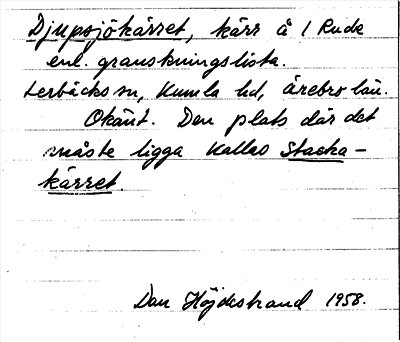 Djupsjökärret, kärr å 1 Rude
enl. granskningslista.
Lerbäcks sn, Kumla hd, örebro län.
Okänt. Den plats där det
måste ligga kallas Stacka-
kärret.
Dan Höjdestrand 1958.